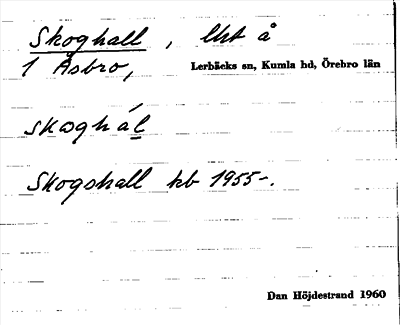 Skoghall, lht å
1 Åsbro, Lerbäcks sn, Kumla hd, Örebro län
skoghál
Skogshall kb 1955-.
Dan Höjdestrand 1960